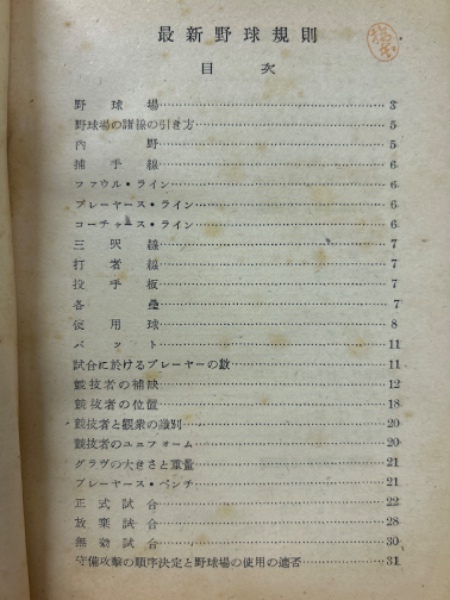 最新野球規則
目次
野球場……3
野球場の諸線の引き方……5
内野……5
捕手線……6
ファウル・ライン……6
プレーヤース・ライン……6
コーチャース・ライン……6
三呎線……7
打者線……7
投手板……7
各壘……7
使用球……8
バット……11
試合に於けるプレーヤーの数……11
競技者の補缺……12
競技者の位置……18
競技者と觀衆の識別……20
競技者のユニフォーム……20
グラヴの大きさと重量……21
プレーヤース・ベンチ……21
正式試合……22
放棄試合……28
無効試合……30
守備攻撃の順序決定と野球場の使用の適否……31